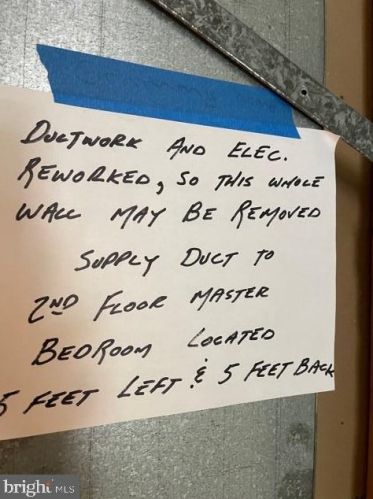 DUCTWORK AND ELEC.
REWORKED, SO THIS WHOLE
WALL MAY BE REMOVED
SUPPLY DUCT TO
2ND FLOOR MASTER
BEDROOM LOCATED
5 FEET LEFT & 5 FEET BACK
bright MLS